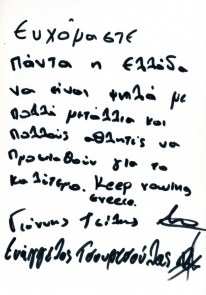 Ευχόμαστε
Πάντα η Ελλάδα
να είναι ψηλά με
πολλά μετάλλια και
πολλούς αθλητές να
προωθούν για το
καλύτερο. Keep rowing
Greece.
Γιάννης
Ευάγγελος